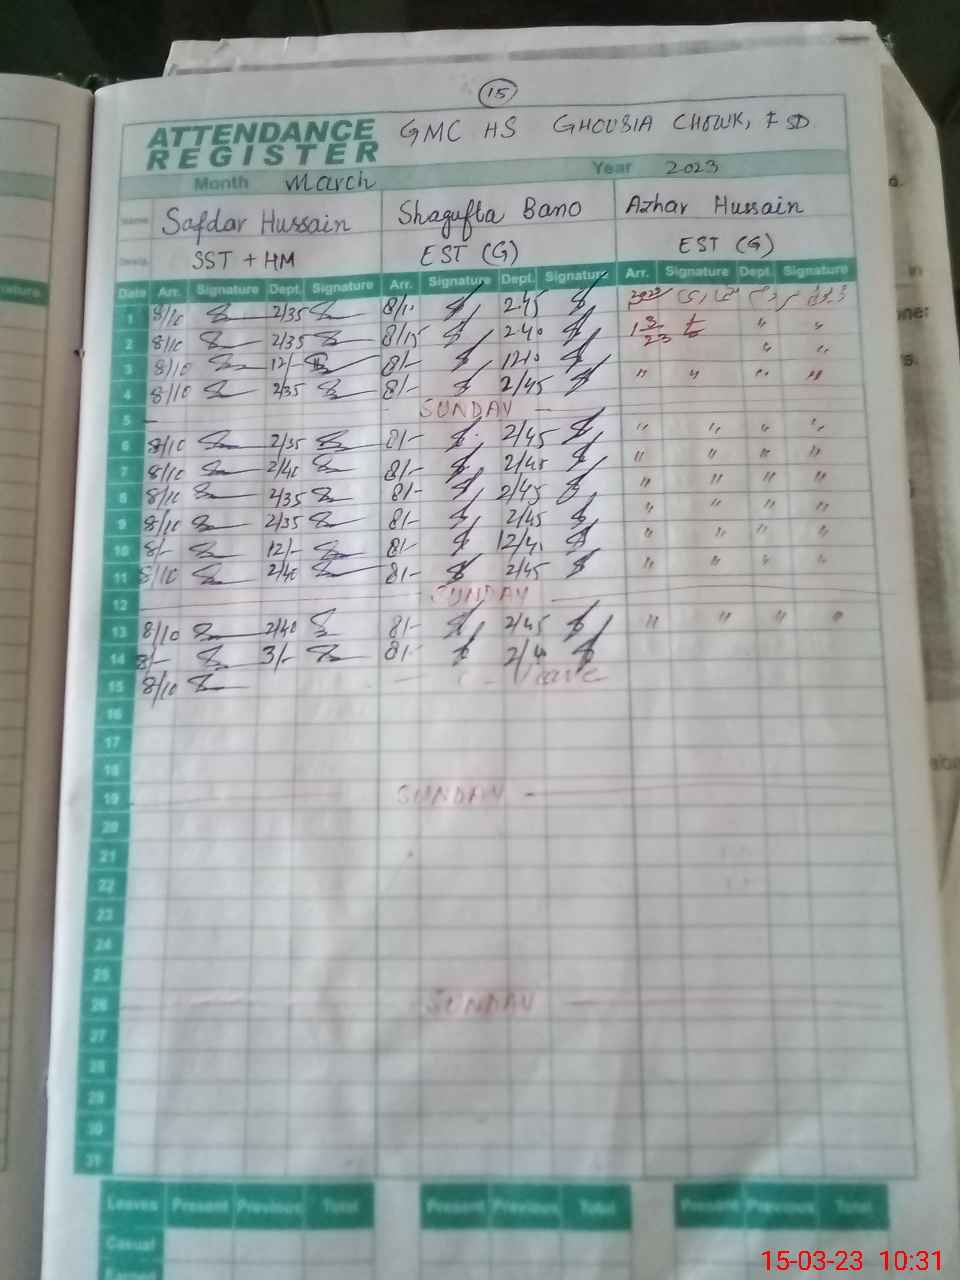 15
ATTENDANCE REGISTER GMC HS GHOUSIA CHOWK, FSD
Month March Year 2023
Name Safdar Hussain Shagufta Bano Azhar Hussain
Desig. SST + HM EST (G) EST (G)
Date Arr. Signature Dept. Signature Arr. Signature Dept. Signature Arr. Signature Dept. Signature
1 8/10 2/35 8/10 2.45
2 8/10 2/35 8/15 2.40 " "
3 8/10 12/- 8/- " "
4 8/10 2/35 8/- 2/45 " " " "
5 SUNDAY
6 8/10 2/35 8/- 2/45 " " " "
7 8/10 2/40 8/- 2/45 " " " "
8 8/10 2/35 8/- 2/45 " " " "
9 8/10 2/35 8/- 2/45 " " " "
10 8/- 12/- 8/- " " " "
11 8/10 2/40 8/- 2/45 " " " "
12 SUNDAY
13 8/10 2/40 8/- 2/45 " " " "
14 8/- 3/- 8/-
15 8/10 Leave
16
17
18
19 SUNDAY
20
21
22
23
24
25
26 SUNDAY
27
28
29
30
31
Leaves Present Previous Total Present Previous Total Present Previous Total
Casual
15-03-23 10:31